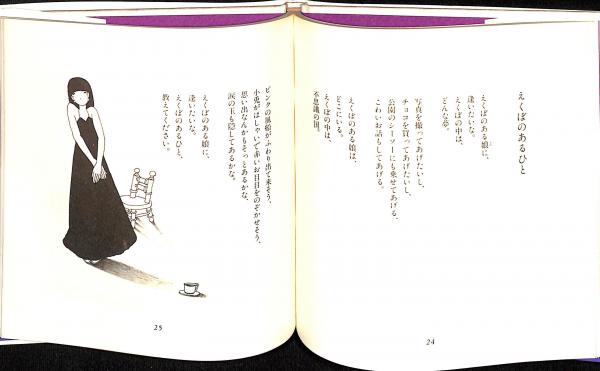 えくぼのあるひと
えくぼのある娘に、
逢いたいな。
えくぼの中は、
どんな夢。
写真を撮ってあげたいし、
チョコを買ってあげたいし、
公園のシーソーにも乗せてあげる、
こわいお話もしてあげる。
えくぼのある娘は、
どこにいる。
えくぼの中は、
不思議の国。
24
ピンクの風船がふわり出て来そう、
小兎がはしゃいで赤いお目目をのぞかせそう、
思い出なんかもそっとあるかな、
涙の玉も隠してあるかな。
えくぼのある娘に、
逢いたいな。
えくぼのあるひと、
教えてください。
25